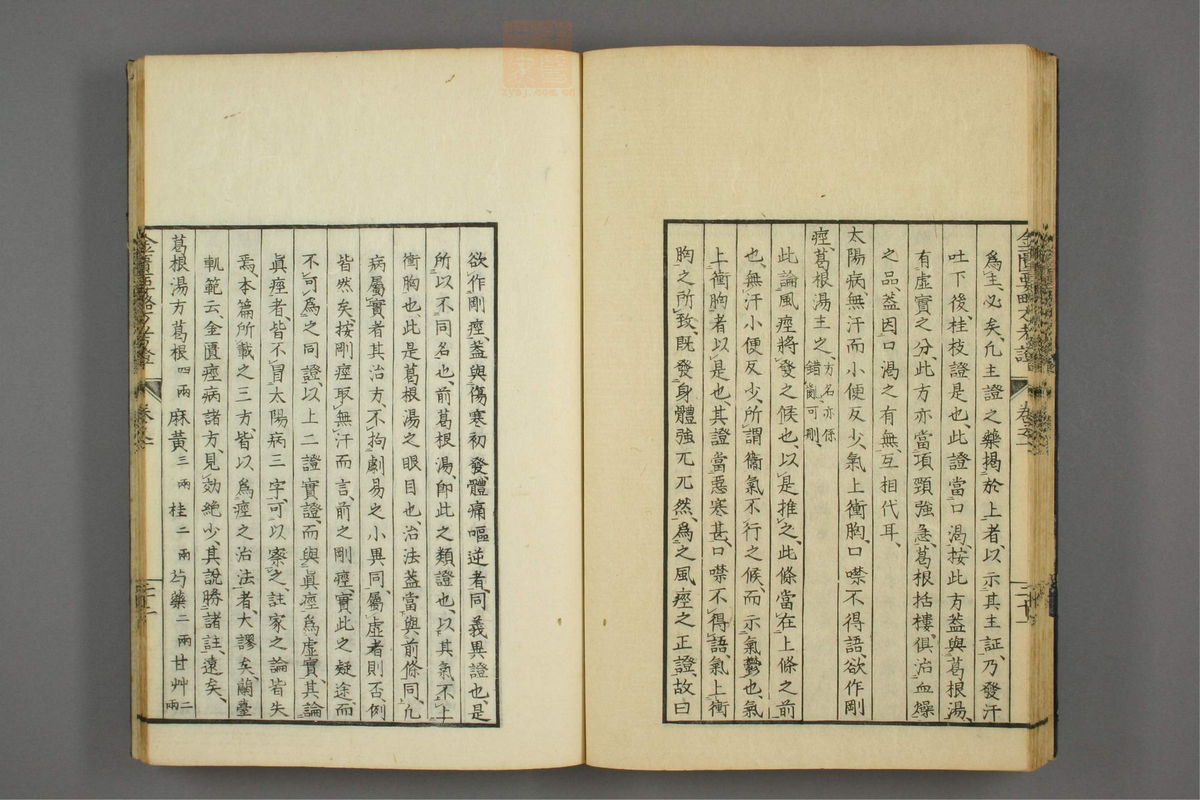 爲主必矣、凡主證之藥揭於上者以示其主証、乃發汗
吐下後、桂枝證是也、此證當口渴、按此方蓋與葛根湯、
有虛實之分、此方亦當項頸強急、葛根括樓、俱治血燥
之品、蓋因口渴之有無、互相代耳、
太陽病無汗而小便反少、氣上衝胸、口噤不得語、欲作剛
痙、葛根湯主之、方名亦係錯簡可刪、
此論風痙將發之候也、以是推之、此條當在上條之前
也、無汗小便反少、所謂衞氣不行之候、而示氣鬱也、氣
上衝胸者以是也、其證當惡寒甚、口噤不得語、氣上衝
胸之所致、既發身體強兀兀然、爲之風痙之正證、故曰
欲作剛痙、蓋與傷寒初發、體痛嘔逆者、同義異證也、是
所以不同名也、前葛根湯、即此之類證也、以其氣不上
衝胸也、此是葛根湯之眼目也、治法蓋當與前條同、凡
病屬實者其治方、不拘劇易之小異同、屬虛者則否、例
皆然矣、按剛痙取無汗而言、前之剛痙、實此之疑途而
不可爲之同證、以上二證實證、而與眞痙爲虛實、其論
眞痙者、皆不冒太陽病三字、可以察之、註家之論皆失
焉、本篇所載之三方、皆以爲痙之治法者、大謬矣、蘭臺
軌範云、金匱痙病諸方、見効絶少、其說勝諸註、遠矣、
葛根湯方葛根四兩麻黃三兩桂二兩芍藥二兩甘艸二兩
金匱要略方考證
卷之